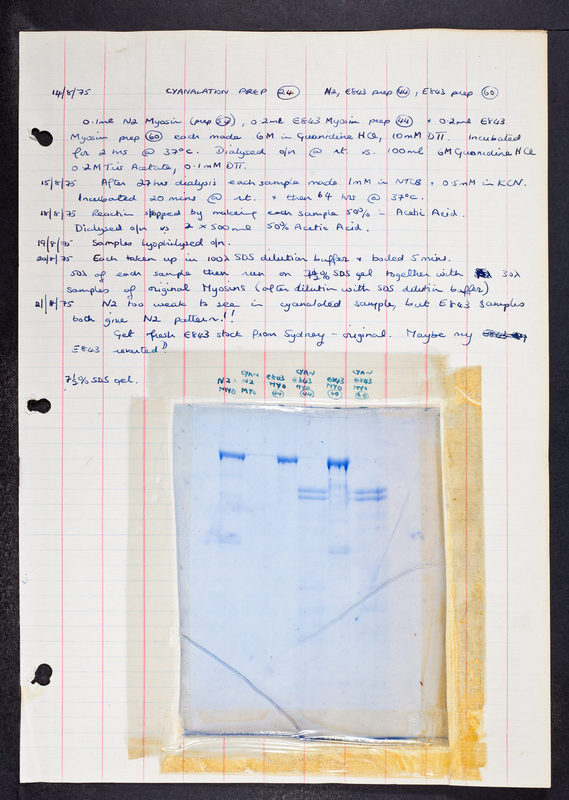 14/8/75 CYANALATION PREP 24 N2, E843 prep 44, E843 prep 60
0.1ml N2 Myosin (prep 52), 0.2ml E843 Myosin prep 44 + 0.2ml E843
Myosin prep 60 each made 6M in Guanidine HCl, 10mM DTT. Incubated
for 2 hrs @ 37°C. Dialysed o/n @ rt. vs. 100ml 6M Guanidine HCl
0.2M Tris Acetate, 0.1mM DTT.
15/8/75 After 27 hrs dialysis each sample made 1mM in NTCB + 0.5mM in KCN.
Incubated 20 mins @ rt. + then 64 hrs @ 37°C.
18/8/75 Reaction stopped by making each sample 50% in Acetic Acid.
Dialysed o/n vs 2 x 500ml 50% Acetic Acid.
19/8/75 Samples lyophilysed o/n.
20/8/75 Each taken up in 100λ SDS dilution buffer + boiled 5 mins.
50λ of each sample then run on 7½% SDS gel together with 30λ
samples of original Myosins (after dilution with SDS dilution buffer)
21/8/75 N2 too weak to see in cyanolated sample, but E843 samples
both give N2 pattern!!
Get fresh E843 stock from Sydney - original. Maybe my
E843 reverted?
7½% SDS gel.
N2 MYO CYAN N2 MYO E843 MYO 44 CYAN E843 MYO 44 E843 MYO 60 CYAN E843 MYO 60